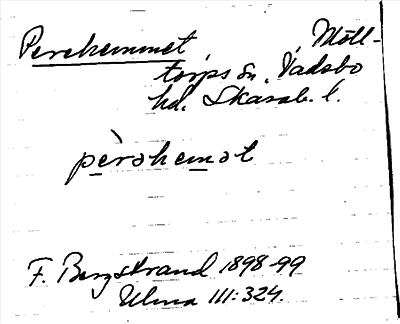 Perehemmet, Möll-
torps sn. Vadsbo
hd. Skarab. l.
pèrəhemət
F. Bergstrand 1898-99
Ulma 111:324.